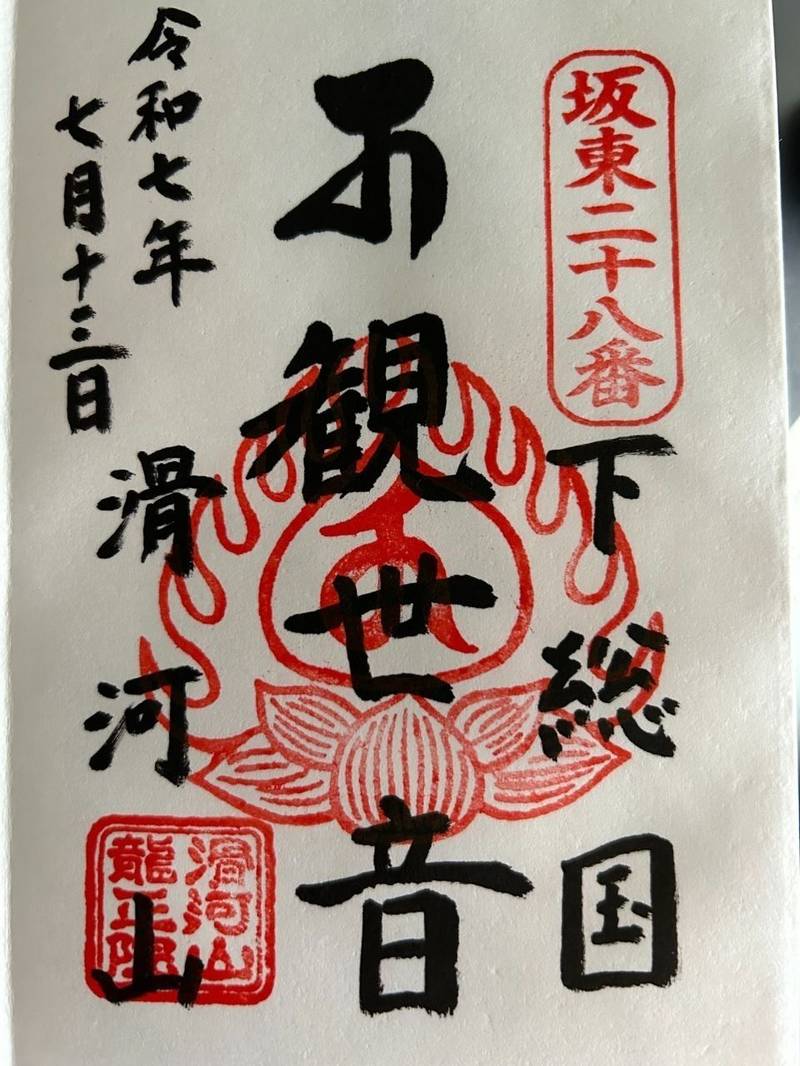 坂東二十八番
下総国
観世音
令和七年
七月十三日
滑河山
滑河山
龍正院